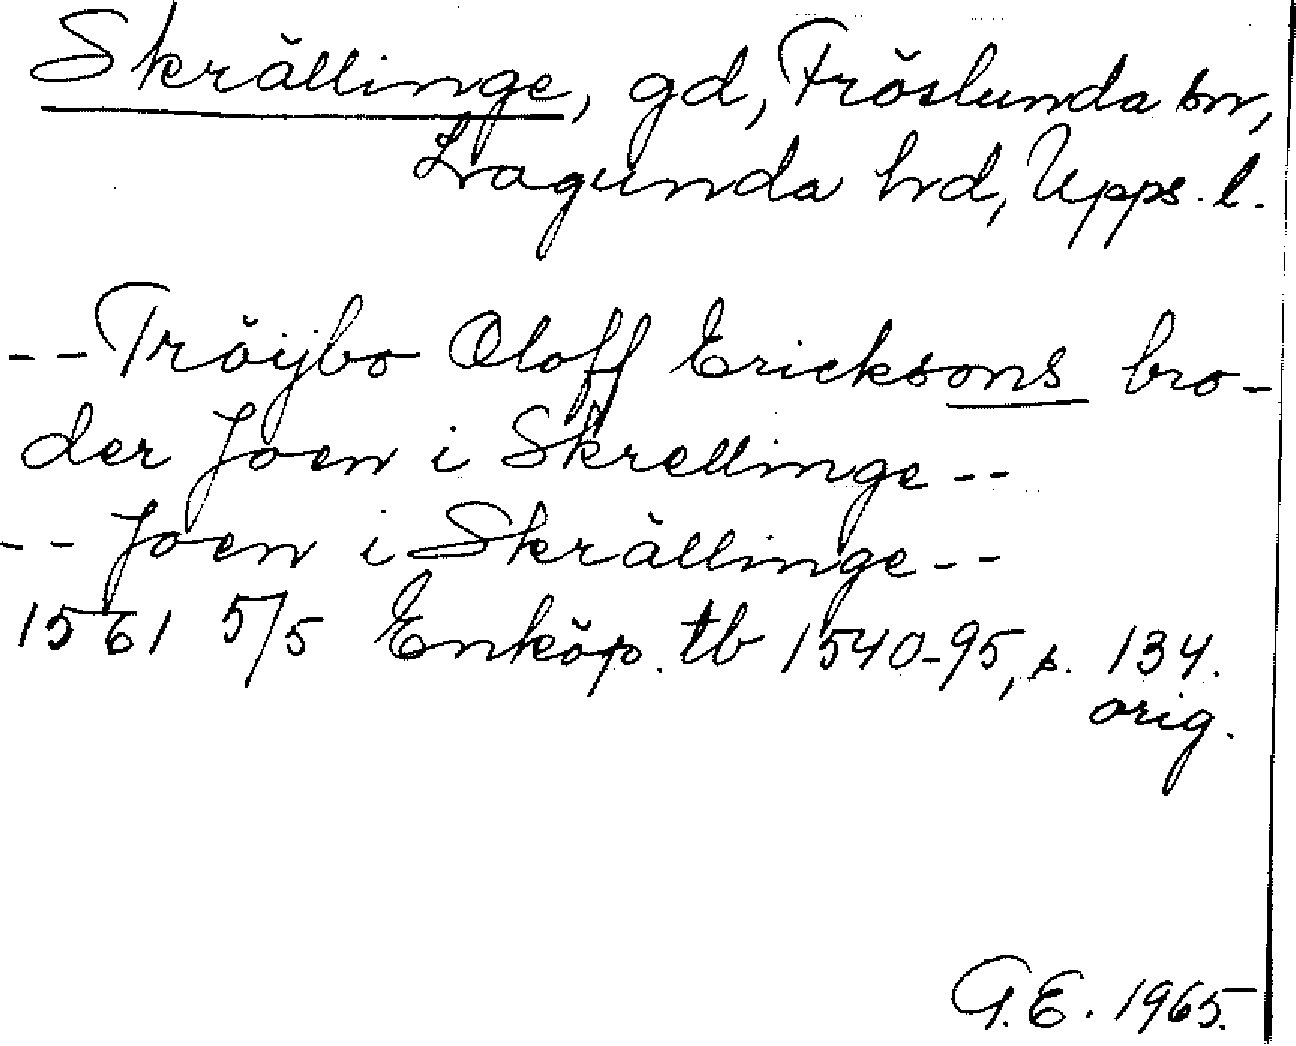 Skrällinge, gd, Fröslunda sn,
Lagunda hd, Upps. l.
-- Tröijbo Oloff Ericksons bro-
der Joen i Skrellinge --
-- Joen i Skrällinge --
1561 5/5 Enköp. tb 1540-95, s. 134.
orig.
G.E. 1965.